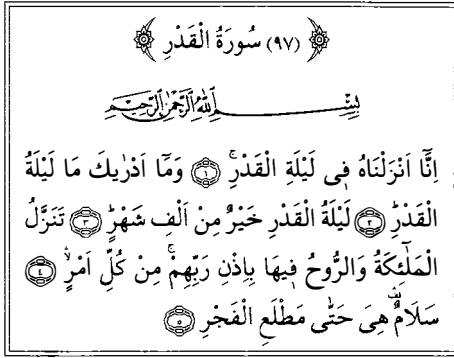 ﴿ (٩٧) سُورَةُ الْقَدْرِ ﴾
بِسْمِ اللّٰهِ الرَّحْمٰنِ الرَّحِيمِ
اِنَّٓا اَنْزَلْنَاهُ فِى لَيْلَةِ الْقَدْرِۚ ﴿١﴾ وَمَٓا اَدْرٰيكَ مَا لَيْلَةُ
الْقَدْرِۜ ﴿٢﴾ لَيْلَةُ الْقَدْرِ خَيْرٌ مِنْ اَلْفِ شَهْرٍۜ ﴿٣﴾ تَنَزَّلُ
الْمَلٰٓئِكَةُ وَالرُّوحُ فِيهَا بِاِذْنِ رَبِّهِمْۚ مِنْ كُلِّ اَمْرٍۙ ﴿٤﴾
سَلَامٌ۠ هِىَ حَتّٰى مَطْلَعِ الْفَجْرِ ﴿٥﴾